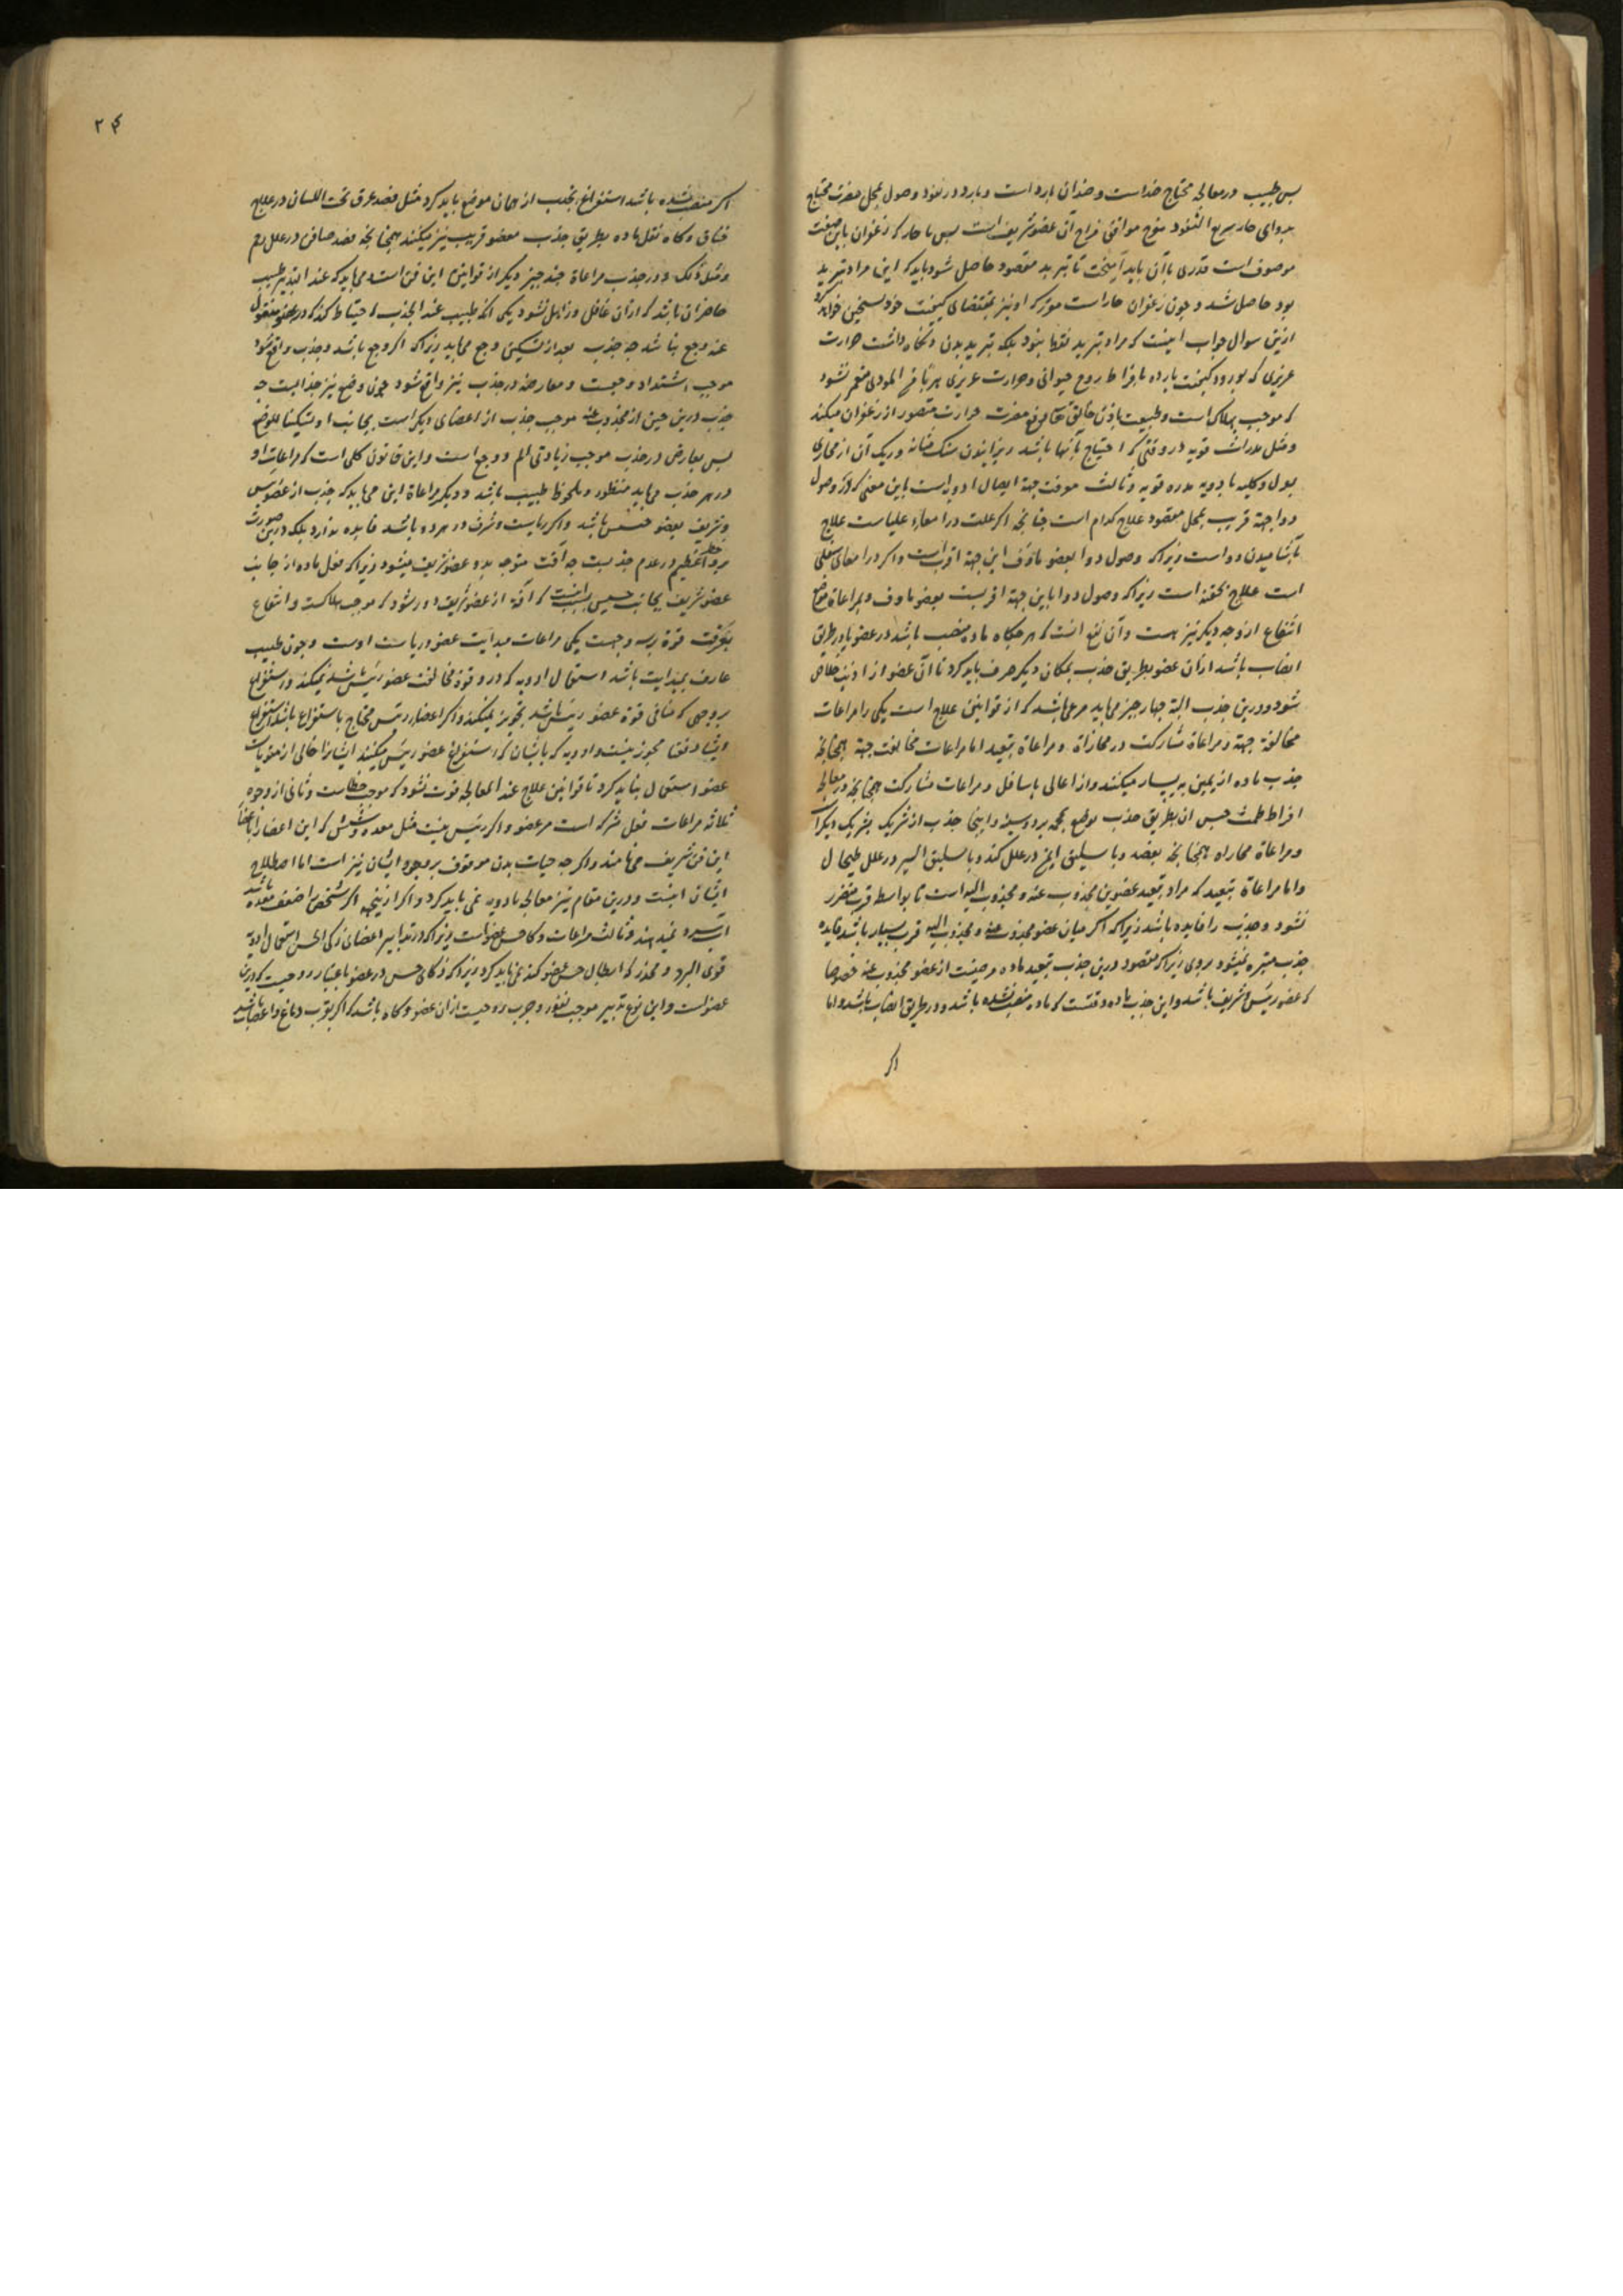 پس طبیب در معالجه محتاج ضد است و ضد آن بارد است و بارد در نفوذ و وصول بمحل مضرت محتاج
بدوای حار سریع النفوذ مفرح موافق مزاج آن عضو شریف است پس با حار که زعفران باین صفت
موصوف است قدری با آن باید آمیخت تا تبرید مقصود حاصل شود باید که این مراد تبرید
بود حاصل شد و چون زعفران حار است موثر که او نیز بمقتضای کیفیت خود تسخین خواهد کرد
ازین سوال جواب اینست که مراد تبرید بنود بلکه تبرید بدن و نگاه داشت حرارت
غریزی که بورود کیفیت بارده بافراط روح حیوانی و حرارت غریزی نشود
که موجب هلاک است و طبیعت باذن خالق مضرت حرارت متصور از زعفران میکند
و مثل مدرات قویه در وقتی که احتیاج بآنها باشد ریزانیدن سنک مثانه و ریک آن از مجاری
بول و کلیه با دویه مدره قویه و ثالث معرفت جهة ایصال ادویه است باین معنی که وصول
دوا جهة قریب بمحل مقصود علاج کدام است چنانچه اگر علت در امعاء علیاست علاج
بآشامیدن دواست زیراکه وصول دوا بعضو ماؤف این جهة اقرب است و اگر در امعای سفلی
است علاج بحقنه است زیراکه وصول دوا باین جهة اقربست بعضو ماوف و بمراعاة موضع
انتفاع از وجه دیگر نیز هست و آن نفع انست که هرگاه ماده منصب باشد در عضو یا در طریق
انصاب باشد از آن عضو بطریق جذب بمکان دیگر صرف باید کرد تا آن عضو از اذیت خلاص
شود و درین جذب البته چهار چیز می باید مرعی باشد که از قوانین علاج است یکی را مراعات
مخالفة جهة و مراعاة مشارکت در محاذاة و مراعاة تبعید اما مراعات مخالفت جهة همچنانچه
جذب ماده از یمین به یسار میکنند و از اعالی باسافل و مراعات مشارکت همچنانچه در معالجه
افراط طمث حبس آن بطریق جذب بوضع محجمه بر دوسینه و اینجا جذب از شریک بشریک دیگر است
و مراعاة محاذاة همچنانچه بفصد و باسلیق ایمن در علل کبد و باسلیق ایسر در علل طحال
و اما مراعاة تبعید که مراد تبعید عضوین مجذوب عنه و مجذوب الیه است تا بواسطه قرب متضرر
نشود و جذب را فایده باشد زیراکه اگر میان عضو مجذوب عنه و مجذوب الیه قرب بسیار باشد فایده
جذب نمیشود بروی زیراکه مقصود درین جذب تبعید ماده مرضیت از عضو مجذوب عنه خصوصا
که عضو رئیس شریف باشد و این جذب ماده وقتست که ماده منصب نشده باشد و در طریق انصاب باشد و اما
اگر
۲۴
اگر منصب شده باشد استفراغ بجذب از همان موضع باید کرد مثل فصد عرق تحت اللسان در علاج
خناق و گاه نقل ماده بطریق جذب بعضو قریب نیز میکنند همچنانچه فصد صافن در علل رحم
و مثل ذلک و در جذب مراعاة چند چیز دیگر از قوانین این فن است می باید که عند التدبیر طبیب
حاضر آن باشد که از آن غافل و ذاهل نشود یکی آنکه طبیب عند الجذب احتیاط کند که در عضو منقول
عنه وجع نباشد چه جذب بعد از تسکین وجع می باید زیراکه اگر وجع باشد و جذب واقع شود
موجب اشتداد وجعست و معارضه در جذب نیز واقع شود چون وجع نیز جذابست چه
جذب درین حین از مجذوب عنه موجب جذب از اعضای دیگر است بجانب او
پس معارض در جذب موجب زیادتی الم و وجع است و این قانون کلی است که مراعات او
در هر جذب می باید منظور و ملحوظ طبیب باشد و دیگر مراعاة این می باید که جذب از عضو رئیس
و شریف بعضو خسیس باشد و اگر ریاست و شرف در هر دو باشد فایده ندارد بلکه درین صورت
خطر عظیم در عدم جذبست چه آفت متوجه بدو عضو شریف میشود زیراکه نقل ماده از جانب
عضو شریف بجانب خسیس که آفة از عضو شریف دور شود که موجب هلاکست و انتفاع
بمعرفت قوة بسه وجهست یکی مراعات مبدایت عضو و ریاست اوست و چون طبیب
عارف بمبدایت باشد استعمال ادویه که در وقوة مخالفت عضو رئیس باشد نمیکند و استفراغ
بروجهی که منافی قوة عضو رئیس باشد تجویز نمیکند و اگر اعضاء رئیس محتاج باستفراغ باشد استفراغ
ایشان دفعة مجوز نیست و ادویه که بایشان که استفراغ عضو رئیس میکنند ایشانرا خالی از مقویات
عضو استعمال نباید کرد تا قوانین علاج عند المعالجه فوت نشود که موجب خطاست و ثانی از وجوه
ثلاثه مراعات فعل مشترک است مر عضو و اگر رئیس نیست مثل معده و شش که این اعضا را
این فن شریف می نامند و اگر چه حیات بدن موقوف بر وجود ایشان نیز است اما اصطلاح
ایشان اینست و درین مقام نیز معالجه بادویه نمی باید کرد و اگر ازینجهه اگر شخصی را ضعف معده باشد
آب سرد نمیدهند و ثالث مراعات ذکا حس عضو است زیراکه در تدابیر اعضای زکی الحس استعمال ادویه
قوی البرد و مخدر که ابطال حس عضو کند نمی باید کرد زیراکه ذکای حس در عضو باعتبار روحیست که درین
عضو است و این نوع تدبیر موجب نفور و هرب روحیست از آن عضو و گاه باشد که اگر بقرب دماغ و اعصاب باشد